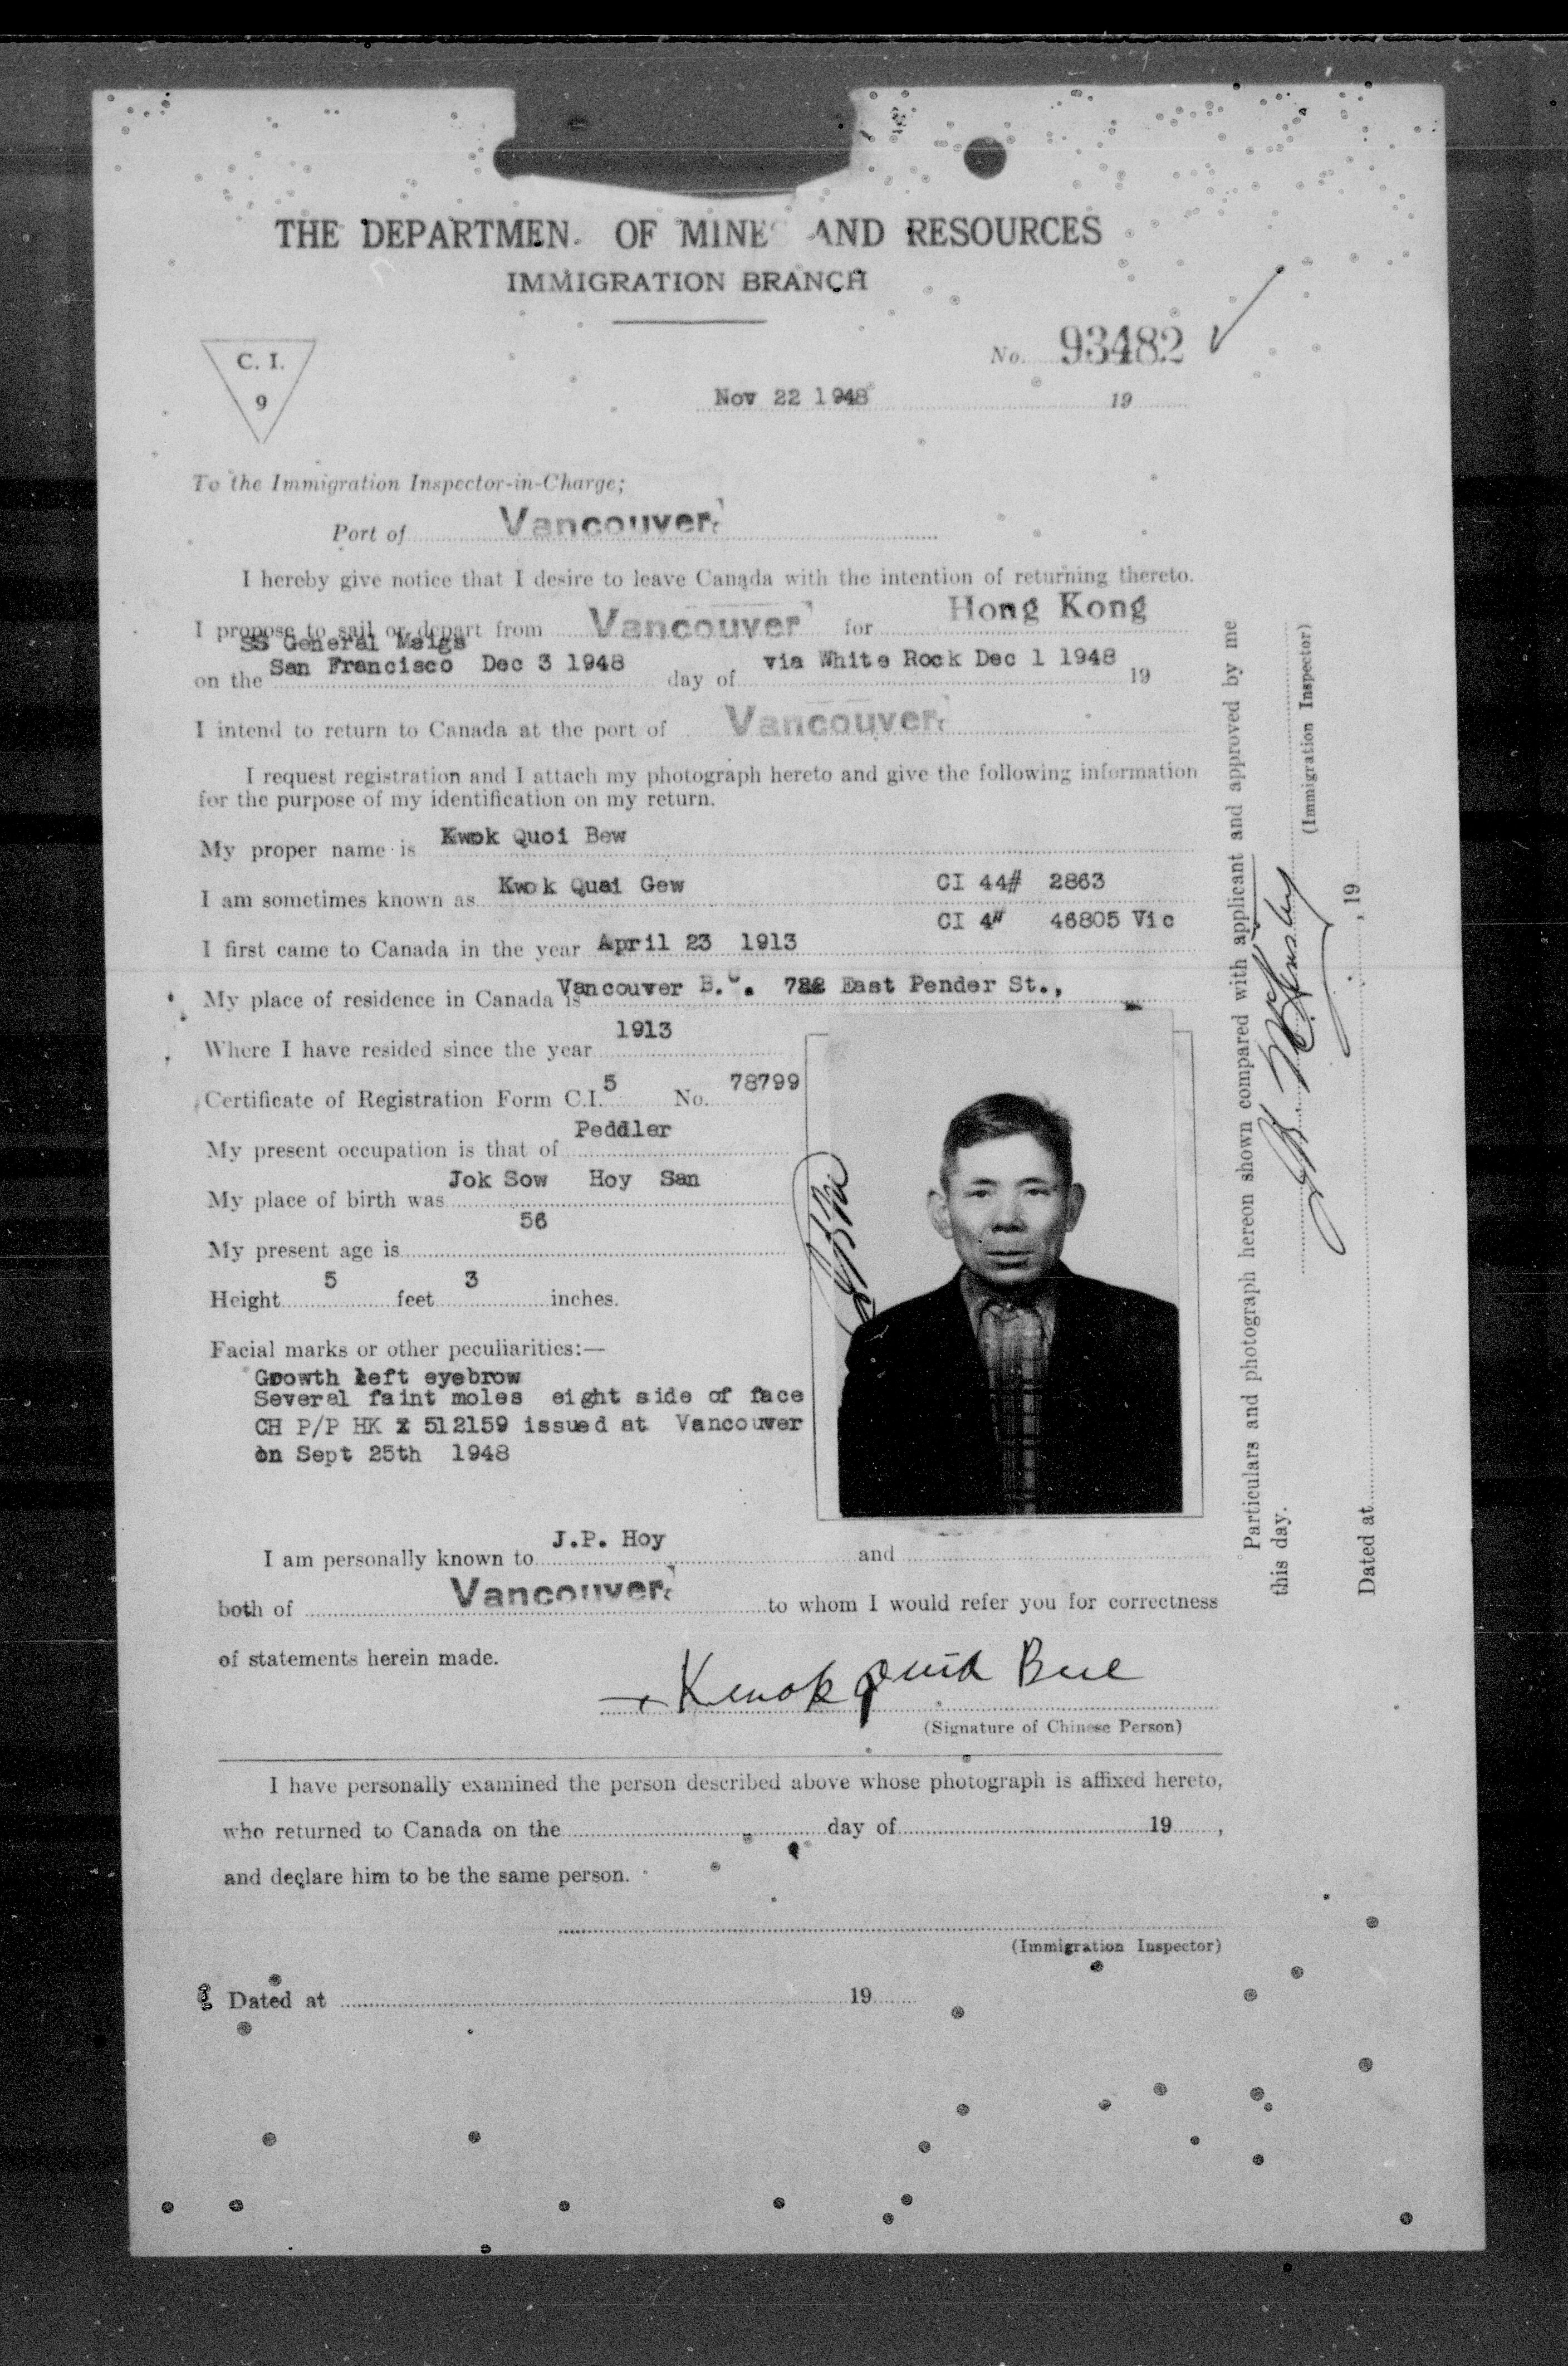 THE DEPARTMEN OF MINE AND RESOURCES
IMMIGRATION BRANCH
C. I.
9
No. 93482
Nov 22 1948 19
To the Immigration Inspector-in-Charge;
Port of Vancouver
I hereby give notice that I desire to leave Canada with the intention of returning thereto.
I propose to sail or depart from Vancouver for Hong Kong
SS General Meigs
on the San Francisco Dec 3 1948 day of via White Rock Dec 1 1948 19
I intend to return to Canada at the port of Vancouver
I request registration and I attach my photograph hereto and give the following information
for the purpose of my identification on my return.
My proper name is Kwok Quoi Bew
I am sometimes known as Kwok Quai Gew CI 44# 2863
CI 4# 46805 Vic
I first came to Canada in the year April 23 1913
My place of residence in Canada is Vancouver B.C. East Pender St.,
Where I have resided since the year 1913
Certificate of Registration Form C.I. 5 No. 78799
My present occupation is that of Peddler
My place of birth was Jok Sow Hoy San
My present age is 56
Height 5 feet 3 inches.
Facial marks or other peculiarities:—
Growth left eyebrow
Several faint moles eight side of face
CH P/P HK 512159 issued at Vancouver
on Sept 25th 1948
I am personally known to J.P. Hoy and
both of Vancouver to whom I would refer you for correctness
of statements herein made.
Kwok Bue
(Signature of Chinese Person)
I have personally examined the person described above whose photograph is affixed hereto,
who returned to Canada on the day of 19 ,
and declare him to be the same person.
(Immigration Inspector)
Dated at 19
Particulars and photograph hereon shown compared with applicant and approved by me
this day.
(Immigration Inspector)
Dated at , 19